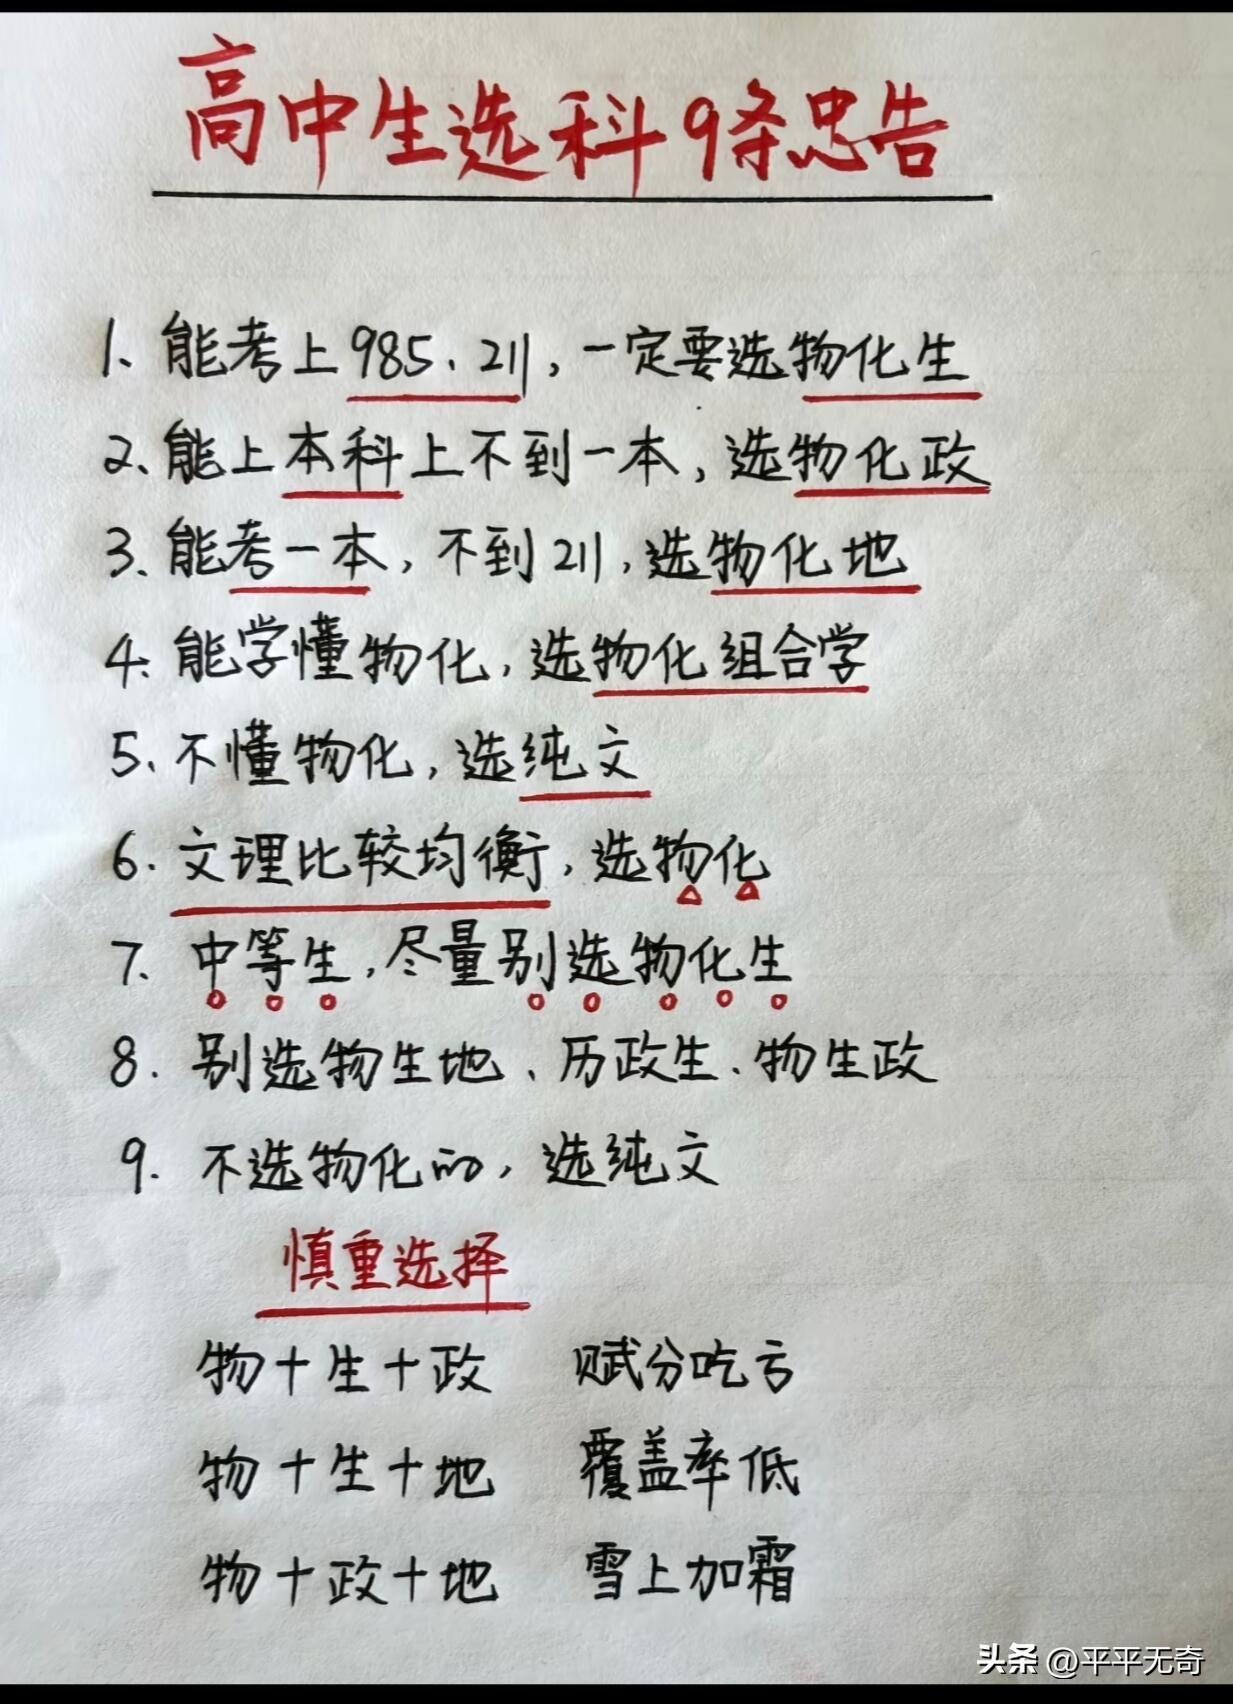 高中生选科9条忠告
1、能考上985、211，一定要选物化生
2、能上本科上不到一本，选物化政
3、能考一本，不到211，选物化地
4、能学懂物化，选物化组合学
5、不懂物化，选纯文
6. 文理比较均衡，选物化
7. 中等生，尽量别选物化生
8. 别选物生地、历政生、物生政
9. 不选物化的，选纯文
慎重选择
物+生+政 赋分吃亏
物+生+地 覆盖率低
物+政+地 雪上加霜
头条 @平平无奇